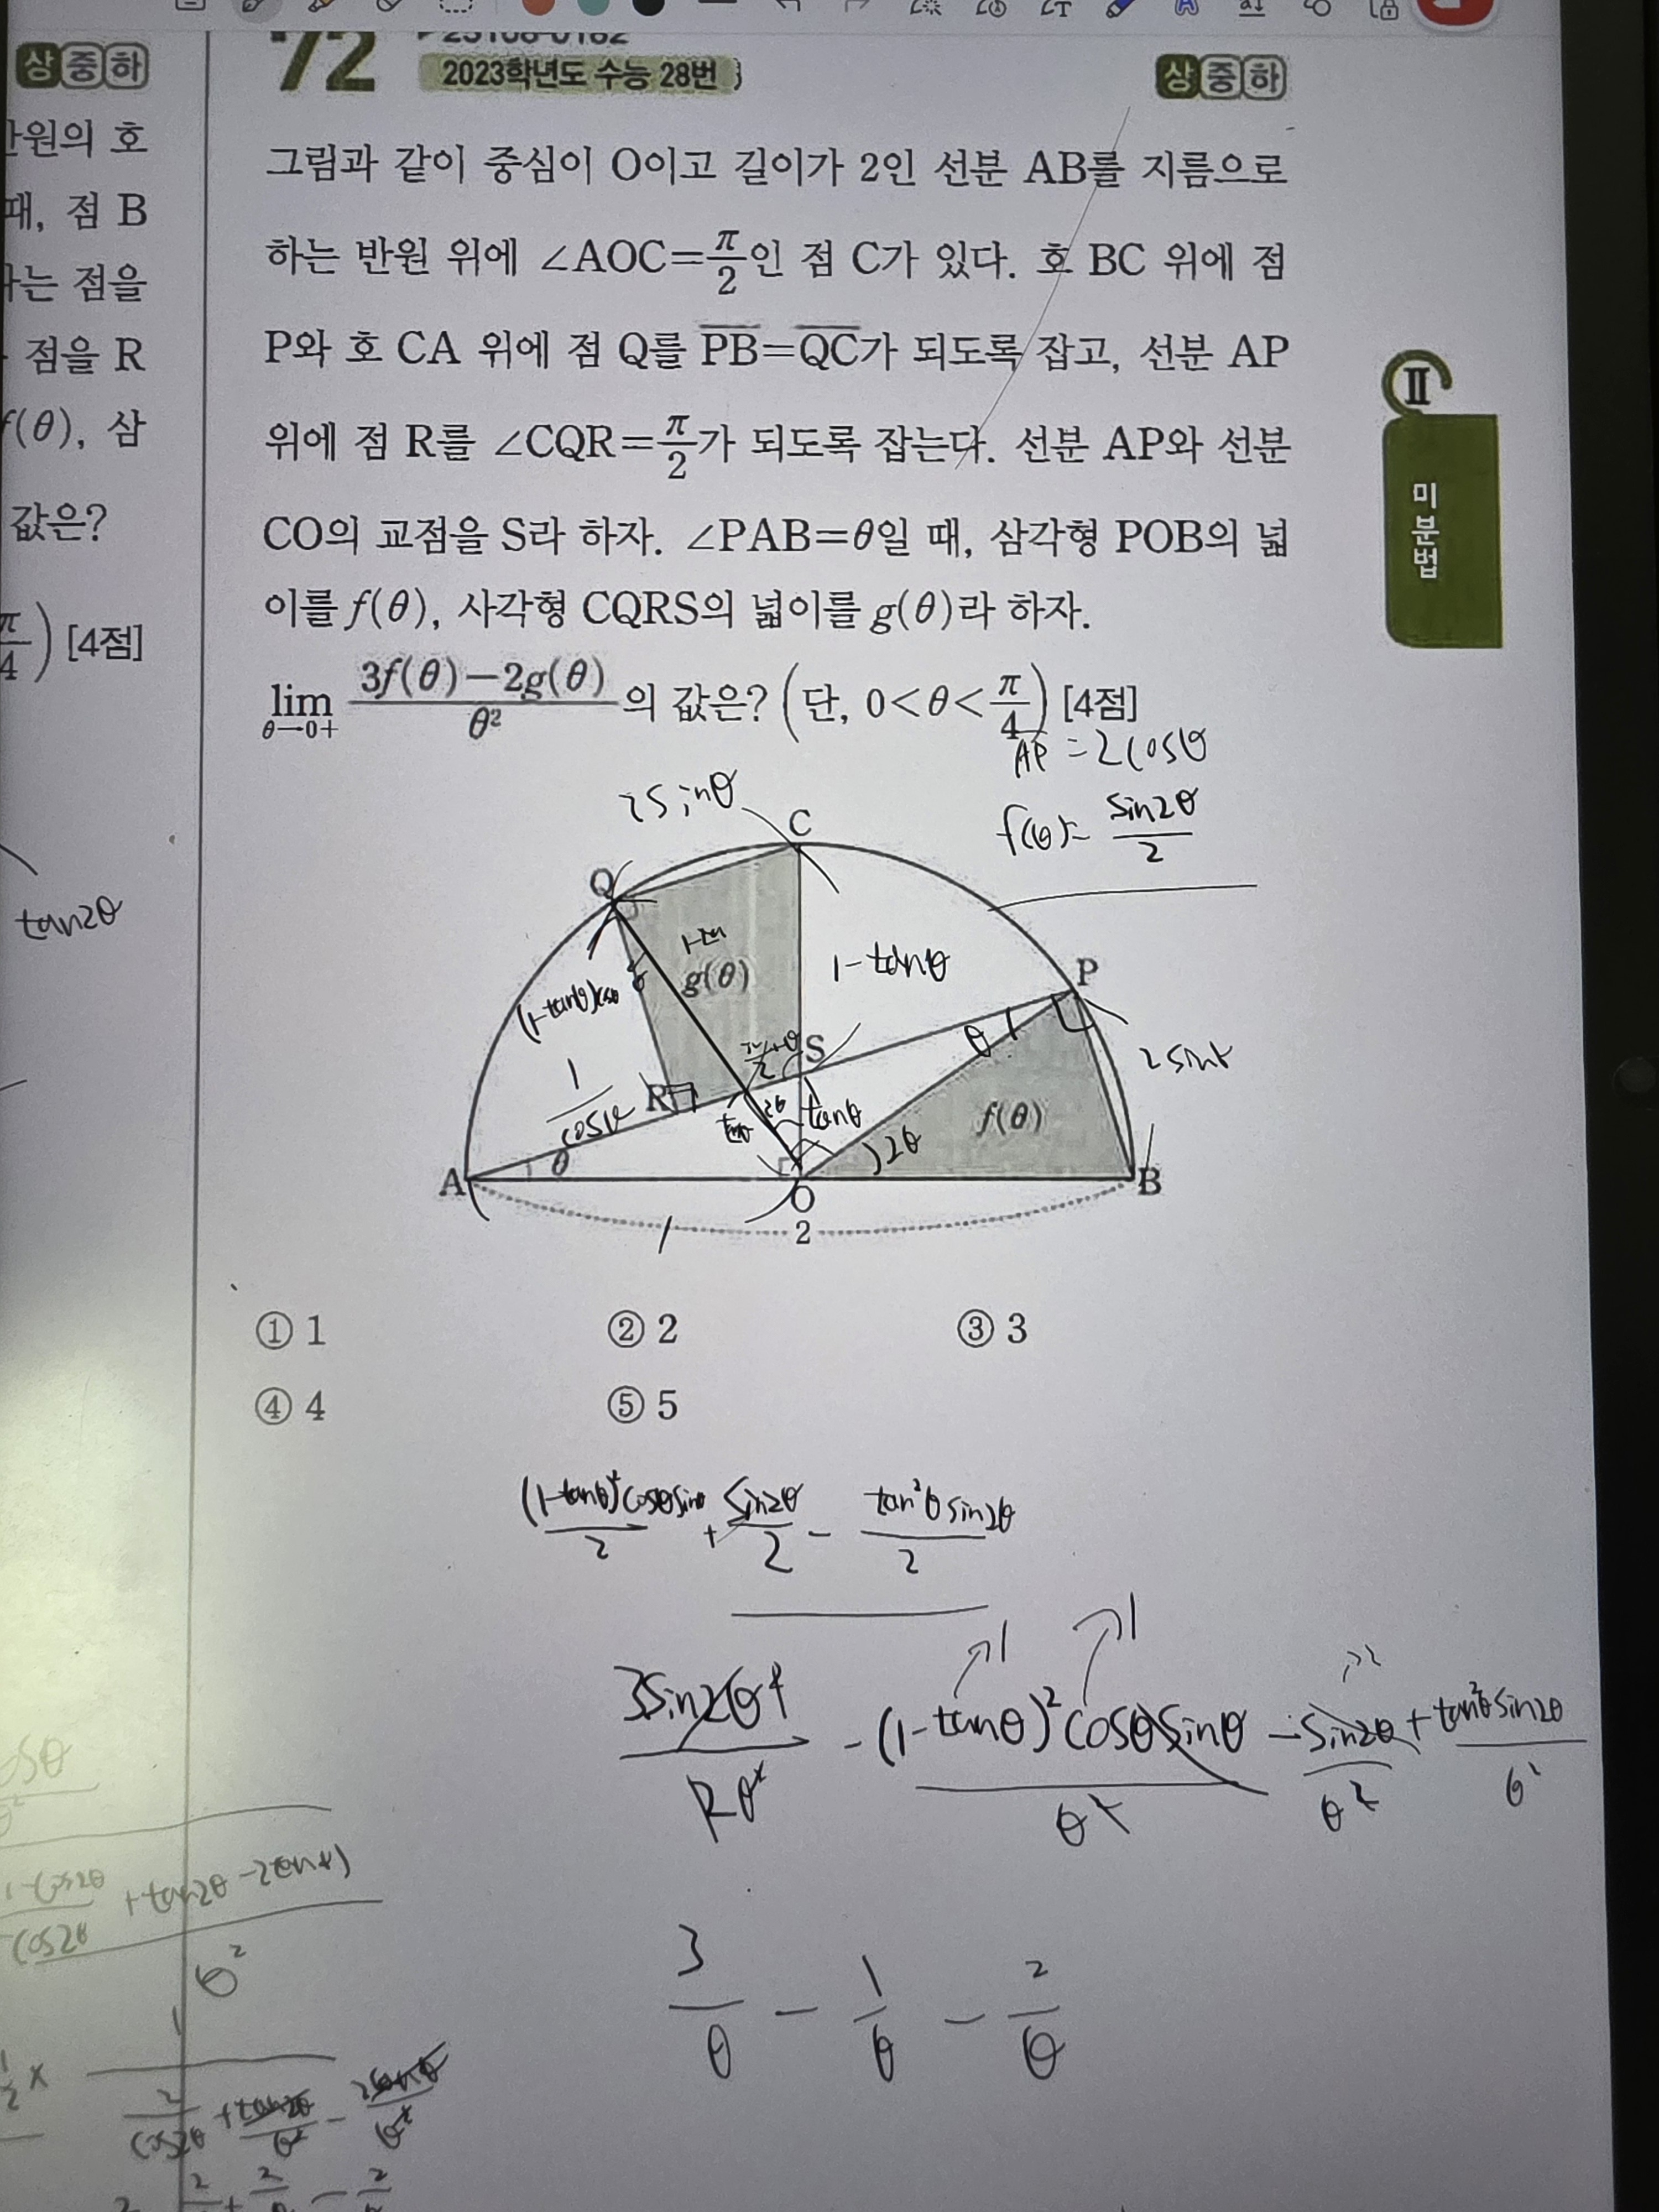 상 중 하
72
2023학년도 수능 28번
상 중 하
그림과 같이 중심이 O이고 길이가 2인 선분 AB를 지름으로
하는 반원 위에 ∠AOC=π/2인 점 C가 있다. 호 BC 위에 점
P와 호 CA 위에 점 Q를 PB=QC가 되도록 잡고, 선분 AP
위에 점 R를 ∠CQR=π/2가 되도록 잡는다. 선분 AP와 선분
CO의 교점을 S라 하자. ∠PAB=θ일 때, 삼각형 POB의 넓
이를 f(θ), 사각형 CQRS의 넓이를 g(θ)라 하자.
lim θ→0+ (3f(θ)-2g(θ))/θ² 의 값은? (단, 0<θ<π/4) [4점]
AP = 2cosθ
f(θ)= sin2θ/2
2sinθ
C
Q
g(θ)
1-tanθ
P
(1-tanθ)cosθ
θ
S
2sinθ
1/cosθ
R
2θ
tanθ
f(θ)
2θ
A
θ
O
B
1
2
① 1 ② 2 ③ 3
④ 4 ⑤ 5
(1-tanθ)²cosθsinθ/2 + sin2θ/2 - tan²θsin2θ/2
3sin2θ/2θ² - (1-tanθ)²cosθsinθ/θ² - sin2θ/θ² + tan²θsin2θ/θ²
3/θ - 1/θ - 2/θ
Ⅱ
미분법
반원의 호
때, 점 B
나는 점을
점을 R
f(θ), 삼
값은?
π/4) [4점]
tan2θ